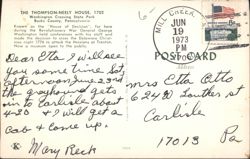 THE THOMPSON-NEELY HOUSE, 1702
Washington Crossing State Park
Bucks County, Pennsylvania
Known as the "House of Decision", for here
during the Revolutionary War General George
Washington held conferences with his staff and
made the decision to cross the Delaware Christ-
mas night 1776 to attack the Hessians at Trenton.
Now a museum open to the public.
Dear Etta, I will see
you some time Sat
afternoon June 23rd
the greyhound gets
in to Carlisle about
4:20 & I will get a
cab & come up.
Mary Reck
MILL CREEK
JUN
19
1973
PM
POST CARD
Mrs Etta Otto
624 W Louther st
Carlisle
Pa
17013